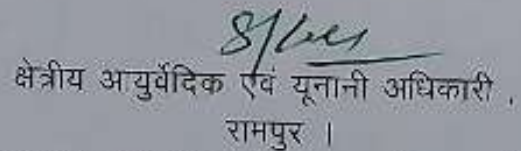 क्षेत्रीय आयुर्वेदिक एवं यूनानी अधिकारी ,
रामपुर ।